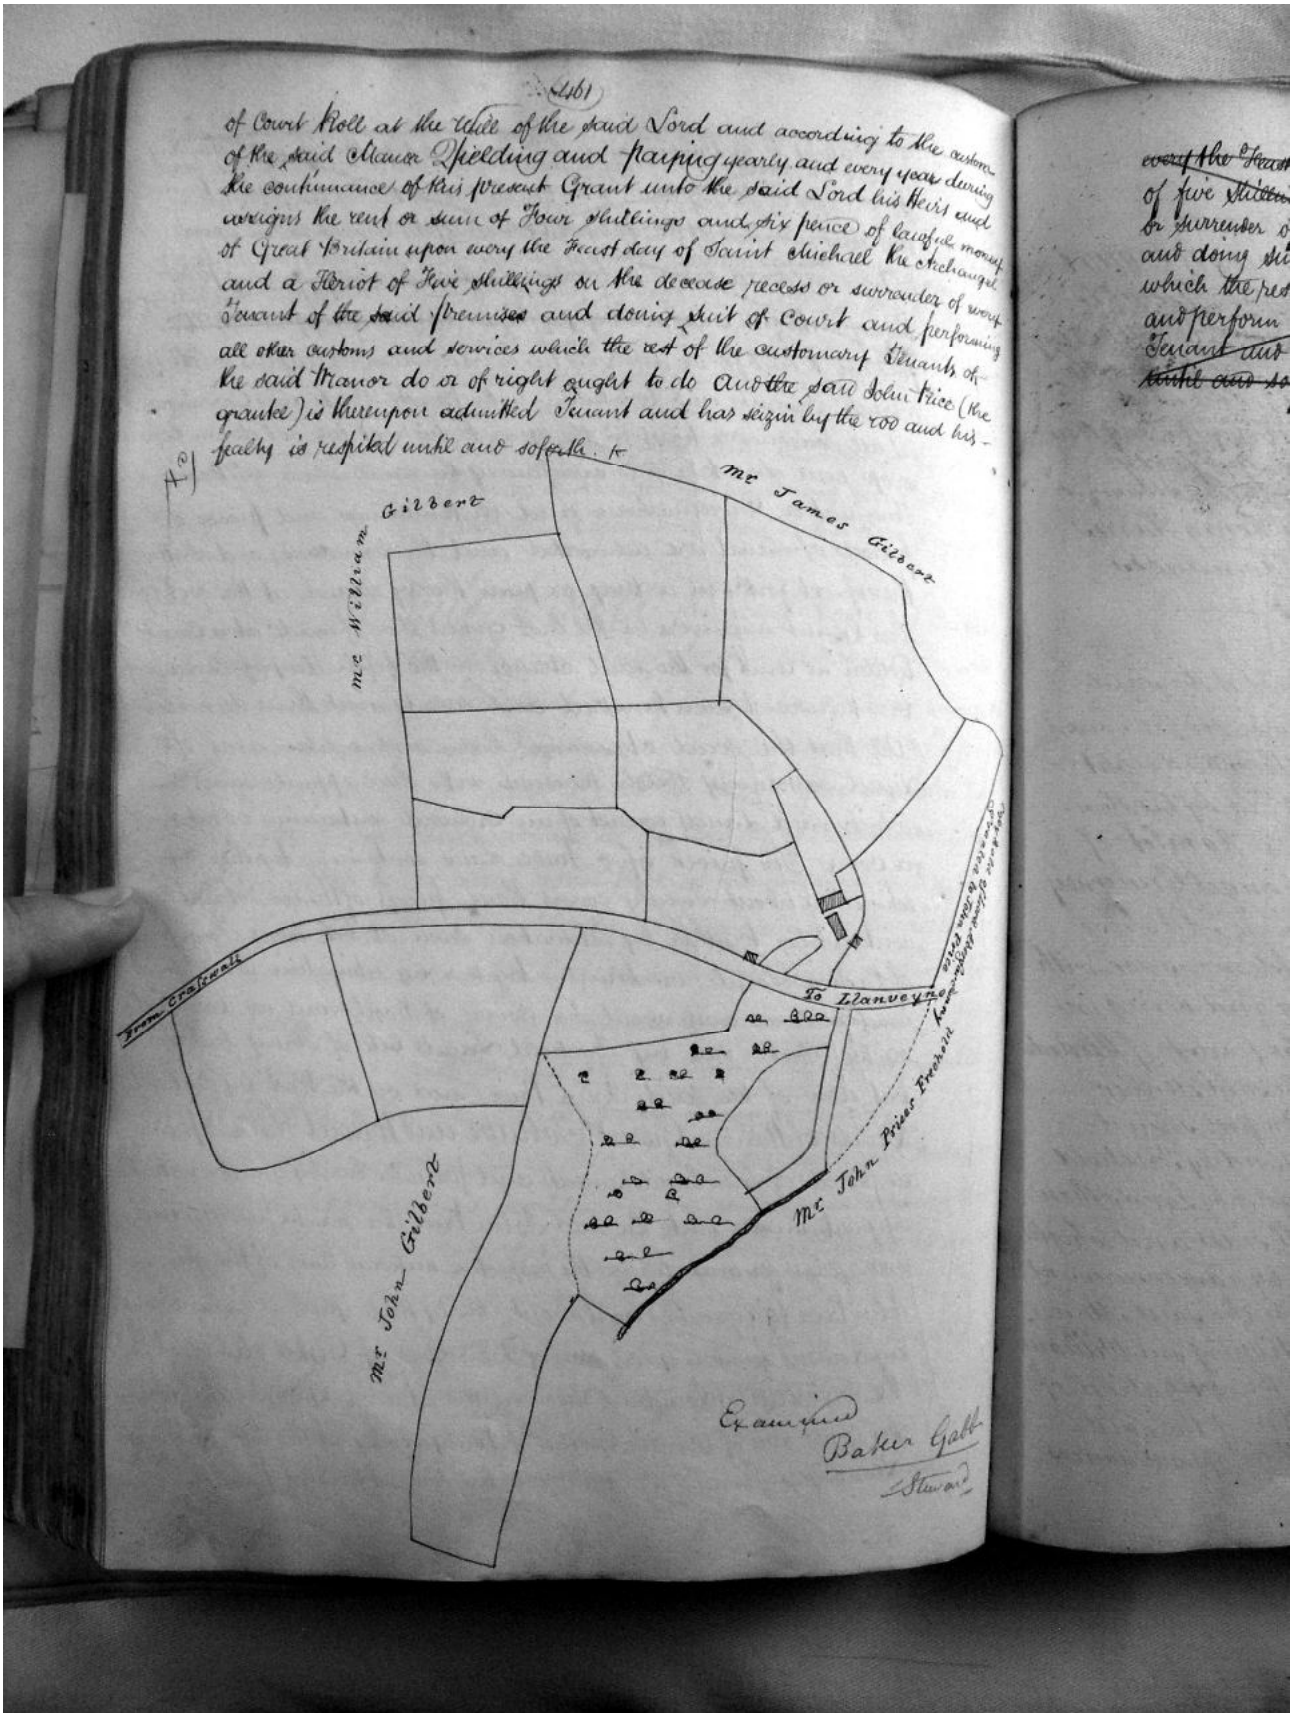 (461)
of Court Roll at the Will of the said Lord and according to the custom
of the said Manor Yielding and Paying yearly and every year during
the continuance of this present Grant unto the said Lord his Heirs and
assigns the rent or sum of Four shillings and six pence of lawful money
of Great Britain upon every the Feast day of Saint Michael the Archangel
and a Heriot of Five shillings on the decease recess or surrender of every
Tenant of the said premises and doing suit of Court and performing
all other customs and services which the rest of the customary Tenants of
the said Manor do or of right ought to do And the said John Price (the
grantee) is thereupon admitted Tenant and has seizin by the rod and his
fealty is respited until and soforth.
Mr James Gilbert
Mr William Gilbert
From Craswall
To Llanveyno
granted to John Price
Mr John Prices Freehold
Mr John Gilbert
Examined
Baker Gabb
Steward
every the Feast
of five shillin
or surrender o
and doing su
which the res
and perform
Tenant and
until and so